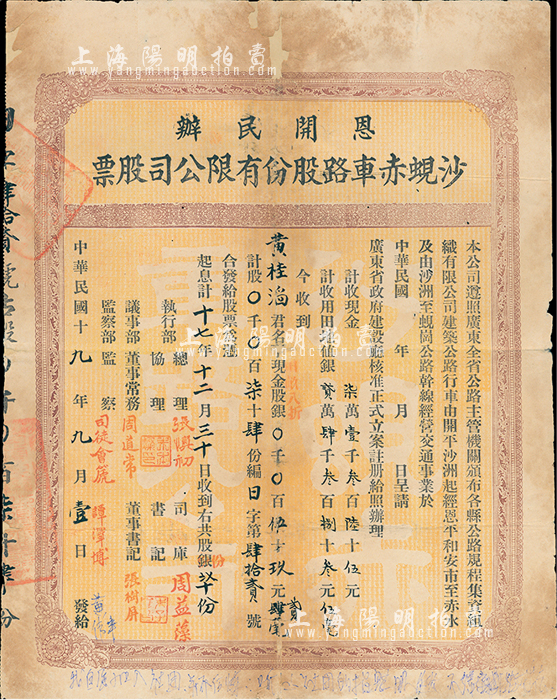 上海陽明拍賣
www.yangmingauction.com
恩開民辦
沙蜆赤車路股份有限公司股票
本公司遵照廣東全省公路主管機關頒布各縣公路規程集資組
織有限公司建築公路行車由開平沙洲起經恩平和安市至赤水
及由沙洲至蜆岡公路幹線經營交通事業於
中華民國 年 月 日呈請
廣東省政府建設廳核准正式立案註册給照辦理
計收現金 柒萬壹千叁百陸十伍元
計收用田價值銀 貳萬肆千叁百捌十叁元伍毫
今收到
黃桂 君名下現金股銀〇千〇百伍十玖元貳毫
計股〇千〇百柒十肆份編日字第肆拾貳號
合發給股票
起息計十七年十二月三十日收到右共股銀 份
執行部 總理 張 初 司庫 周益藻
協理 書記
議事部董事常務 周道常 董事書記 張樹屏
監察部監察 司徒會 譚澤博
中華民國十九年九月壹日 發給
上海陽明拍賣
www.yangmingauction.com